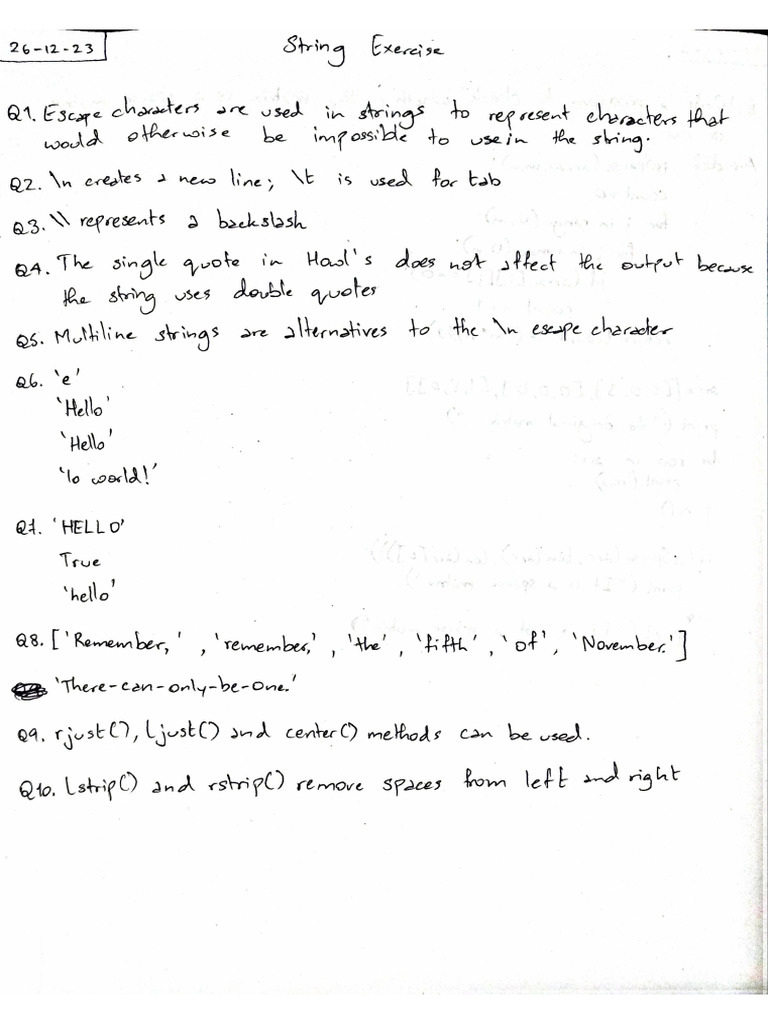 26-12-23
String Exercise
Q1. Escape characters are used in strings to represent characters that
would otherwise be impossible to use in the string.
Q2. \n creates a new line; \t is used for tab
Q3. \\ represents a backslash
Q4. The single quote in Howl's does not affect the output because
the string uses double quotes
Q5. Multiline strings are alternatives to the \n escape character
Q6. 'e'
'Hello'
'Hello'
'lo world!'
Q7. 'HELLO'
True
'hello'
Q8. ['Remember,', 'remember,', 'the', 'fifth', 'of', 'November.']
'There-can-only-be-one.'
Q9. rjust(), ljust() and center() methods can be used.
Q10. lstrip() and rstrip() remove spaces from left and right